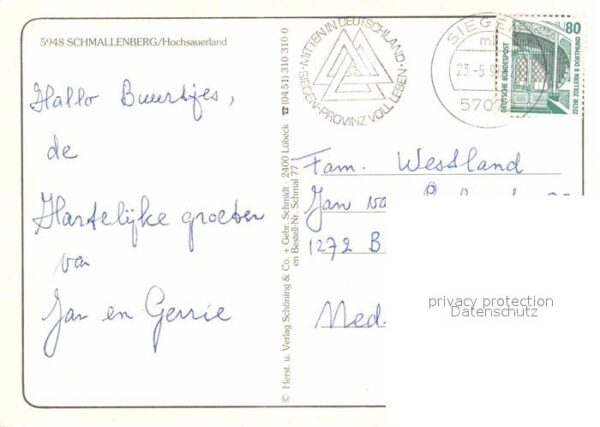 5948 SCHMALLENBERG/Hochsauerland
Hallo Buurtjes,
de
Hartelijke groeten
van
Jan en Gerrie
© Herst. u. Verlag Schöning & Co. + Gebr. Schmidt · 2400 Lübeck ☎ (04 51) 310 310 0
en Bestell-Nr. Schmal 77
SIEGEN · MITTEN IN DEUTSCHLAND ·
PROVINZ VOLL LEBEN
SIEG
23.-5.
570
80
DEUTSCHE BUNDESPOST
ZECHE ZOLLERN II DORTMUND
Fam. Westland
Jan
1272 B
Ned.
privacy protection
Datenschutz